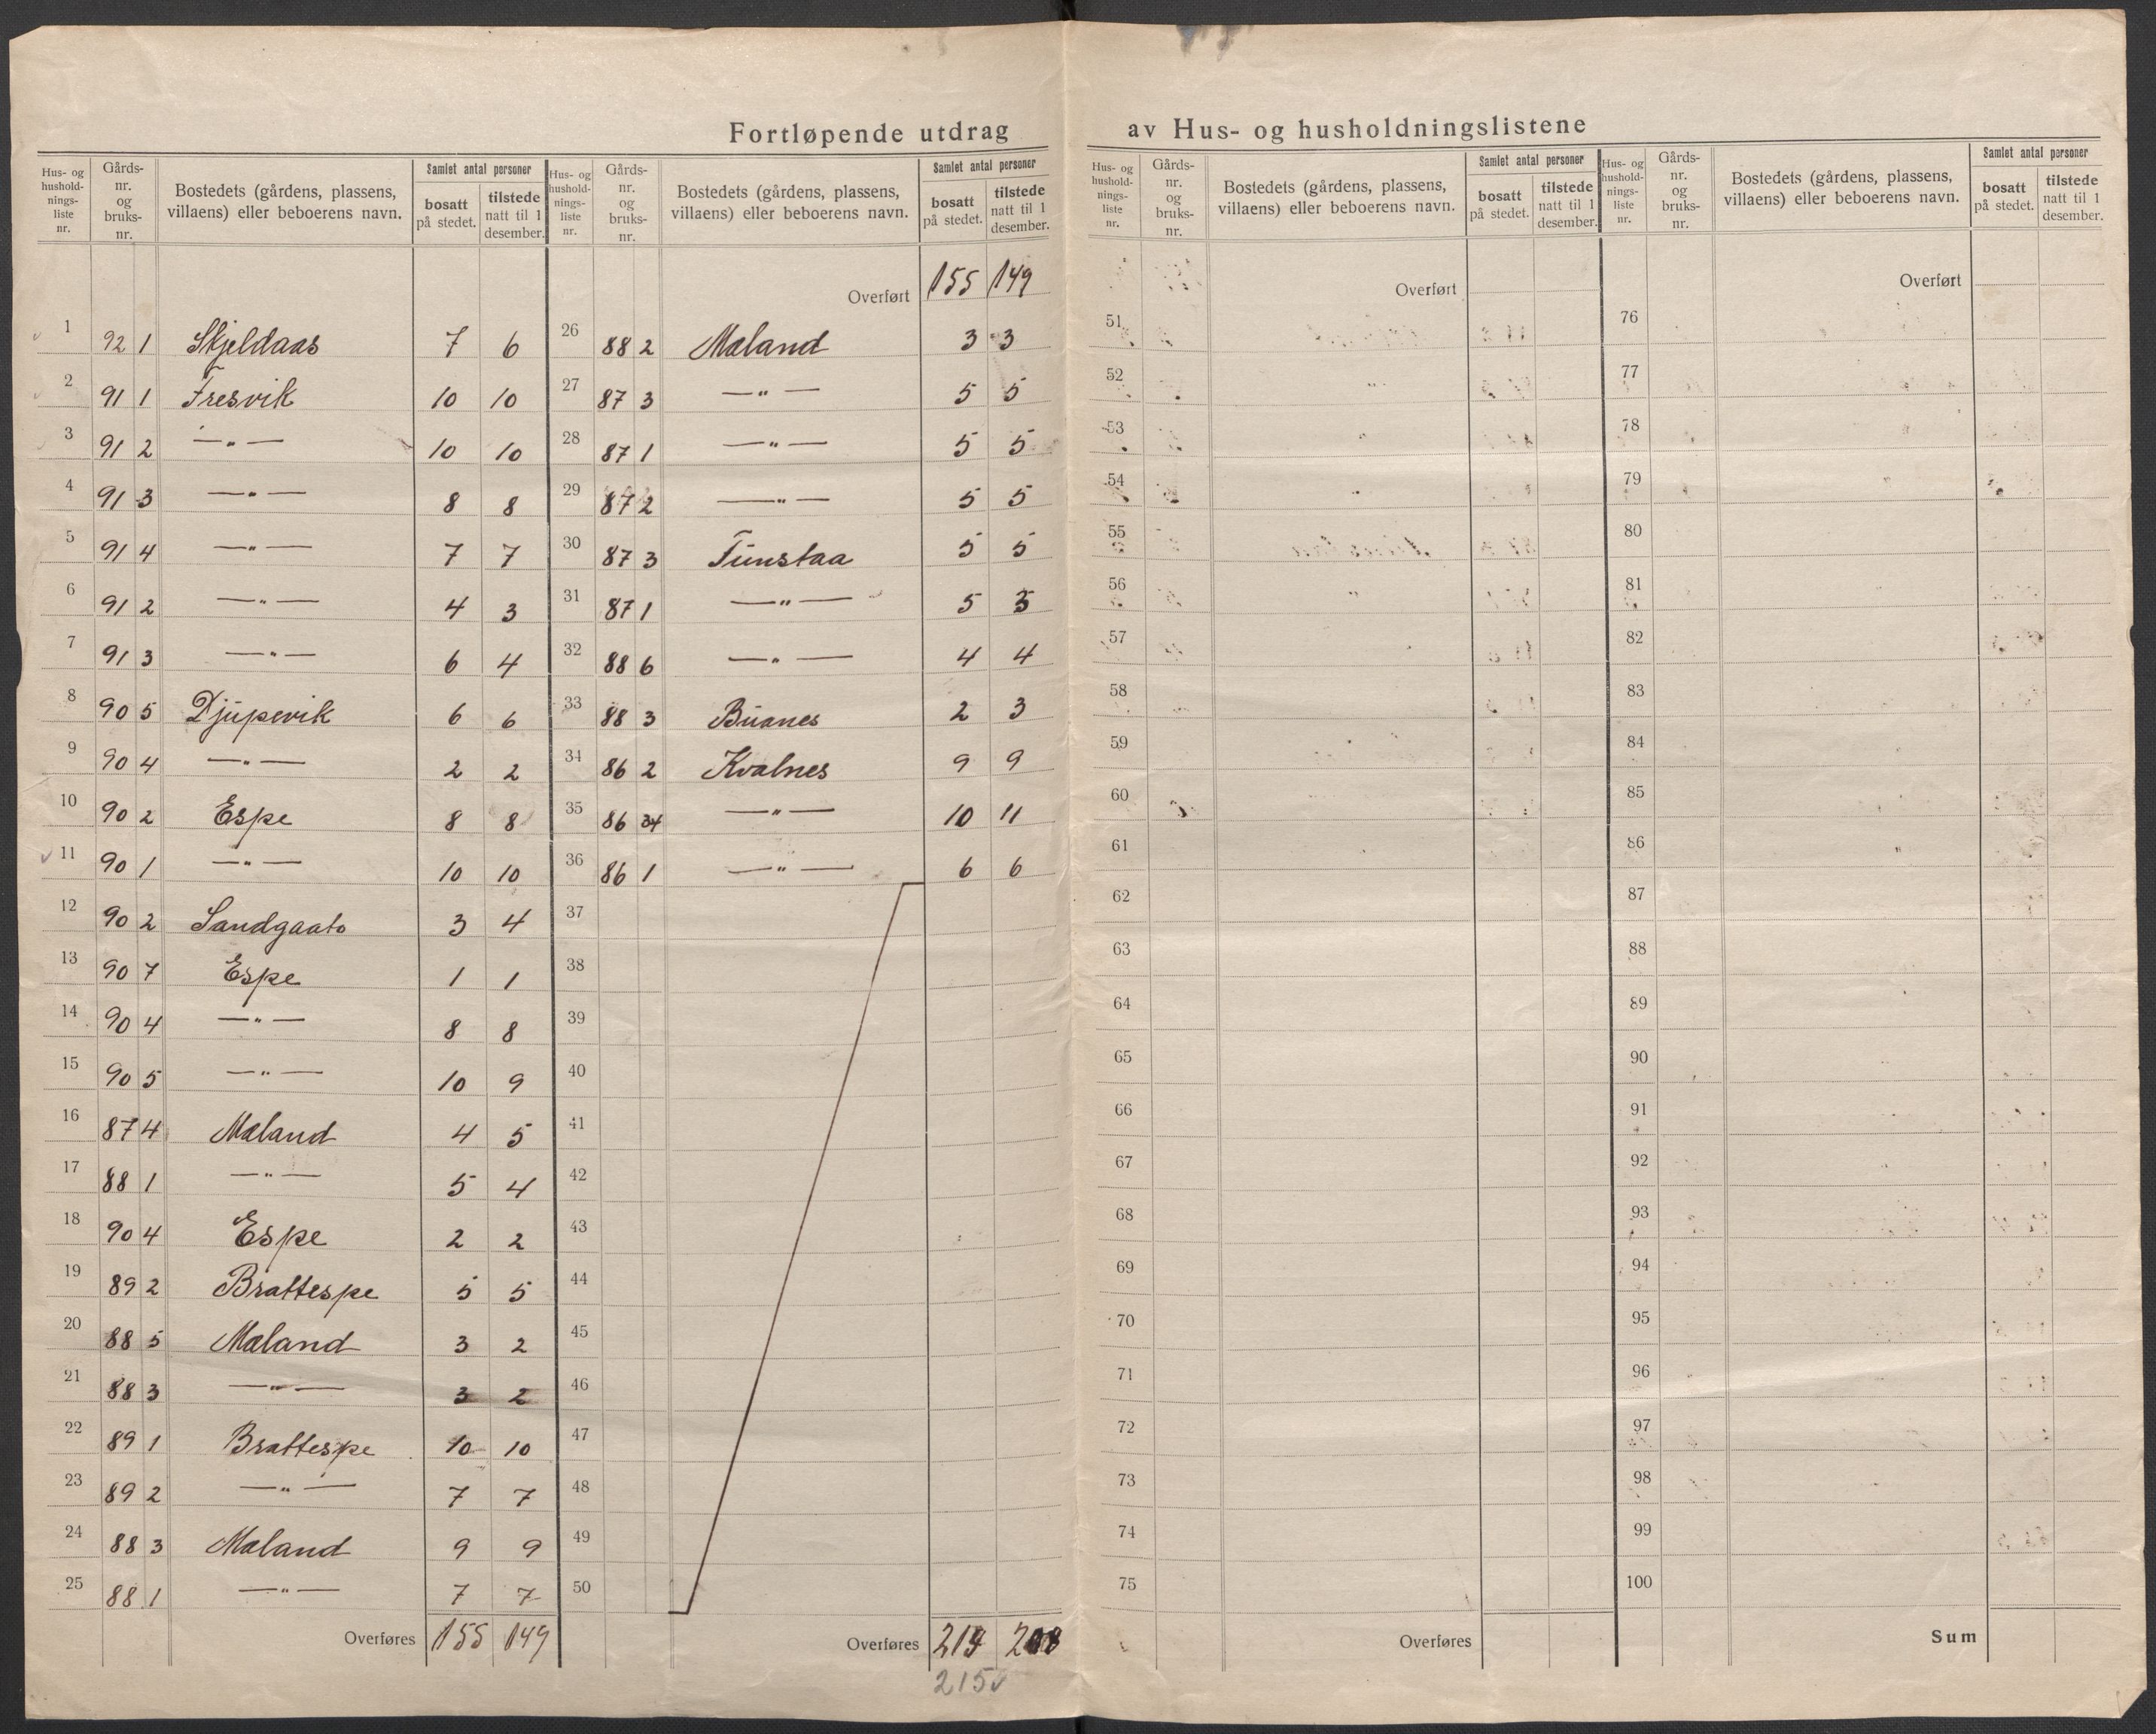 Fortløpende utdrag av Hus- og husholdningslistene
Hus- og hushold-nings-liste nr. | Gårds-nr. og bruks-nr. | Bostedets (gårdens, plassens, villaens) eller beboerens navn. | Samlet antal personer | bosatt på stedet. | tilstede natt til 1 desember.
1 92 1 Skjeldaas 7 6
2 91 1 Fresvik 10 10
3 91 2 —„— 10 10
4 91 3 —„— 8 8
5 91 4 —„— 7 7
6 91 2 —„— 4 3
7 91 3 —„— 6 4
8 90 5 Djupevik 6 6
9 90 4 —„— 2 2
10 90 2 Espe 8 8
11 90 1 —„— 10 10
12 90 2 3 4
13 90 7 Espe 1 1
14 90 4 —„— 8 8
15 90 5 —„— 10 9
16 87 4 Mæland 4 5
17 88 1 —„— 5 4
18 90 4 Espe 2 2
19 89 2 Brattespe 5 5
20 88 5 Mæland 3 2
21 88 3 —„— 3 2
22 89 1 Brattespe 10 10
23 89 2 —„— 7 7
24 88 3 Mæland 9 9
25 88 1 —„— 7 7
Overføres 155 149
Hus- og hushold-nings-liste nr. | Gårds-nr. og bruks-nr. | Bostedets (gårdens, plassens, villaens) eller beboerens navn. | Samlet antal personer | bosatt på stedet. | tilstede natt til 1 desember.
Overført 155 149
26 88 2 Mæland 3 3
27 87 3 —„— 5 5
28 87 1 —„— 5 5
29 87 2 —„— 5 5
30 87 3 Tunstaa 5 5
31 87 1 —„— 5
32 88 6 —„— 4 4
33 88 3 Buanes 2 3
34 86 2 Kvalnes 9 9
35 86 34 —„— 10 11
36 86 1 —„— 6 6
37
38
39
40
41
42
43
44
45
46
47
48
49
50
Overføres 219 208
215
Hus- og hushold-nings-liste nr. | Gårds-nr. og bruks-nr. | Bostedets (gårdens, plassens, villaens) eller beboerens navn. | Samlet antal personer | bosatt på stedet. | tilstede natt til 1 desember.
Overført
51
52
53
54
55
56
57
58
59
60
61
62
63
64
65
66
67
68
69
70
71
72
73
74
75
Overføres
Hus- og hushold-nings-liste nr. | Gårds-nr. og bruks-nr. | Bostedets (gårdens, plassens, villaens) eller beboerens navn. | Samlet antal personer | bosatt på stedet. | tilstede natt til 1 desember.
Overført
76
77
78
79
80
81
82
83
84
85
86
87
88
89
90
91
92
93
94
95
96
97
98
99
100
Sum